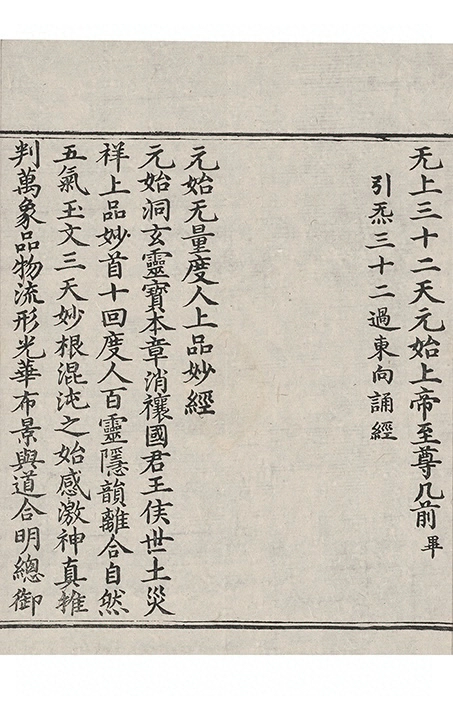 无上三十二天元始上帝至尊几前畢
引炁三十二過東向誦經
元始无量度人上品妙經
元始洞玄靈寳本章消禳國君王侯世土災
祥上品妙首十回度人百靈隱韻離合自然
五氣玉文三天妙根混沌之始感激神真推
判萬象品物流形光華布景與道合明總御